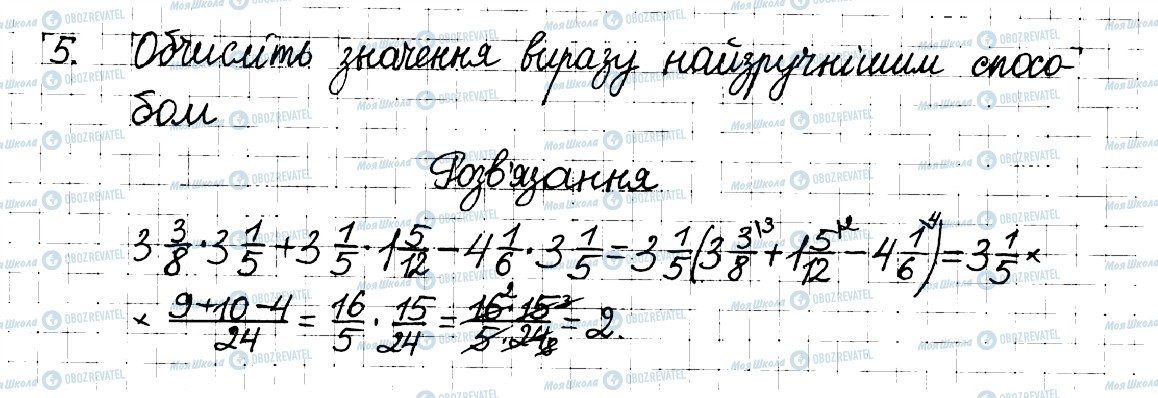 5. Обчисліть значення виразу найзручнішим спосо-
бом
Розв'язання
3 3/8 · 3 1/5 + 3 1/5 · 1 5/12 − 4 1/6 · 3 1/5 = 3 1/5 (3 3/8 \3 + 1 5/12 \2 − 4 1/6 \4) = 3 1/5 ×
× (9+10−4)/24 = 16/5 · 15/24 = (16 2 · 15 3)/(5 · 24 8) = 2.